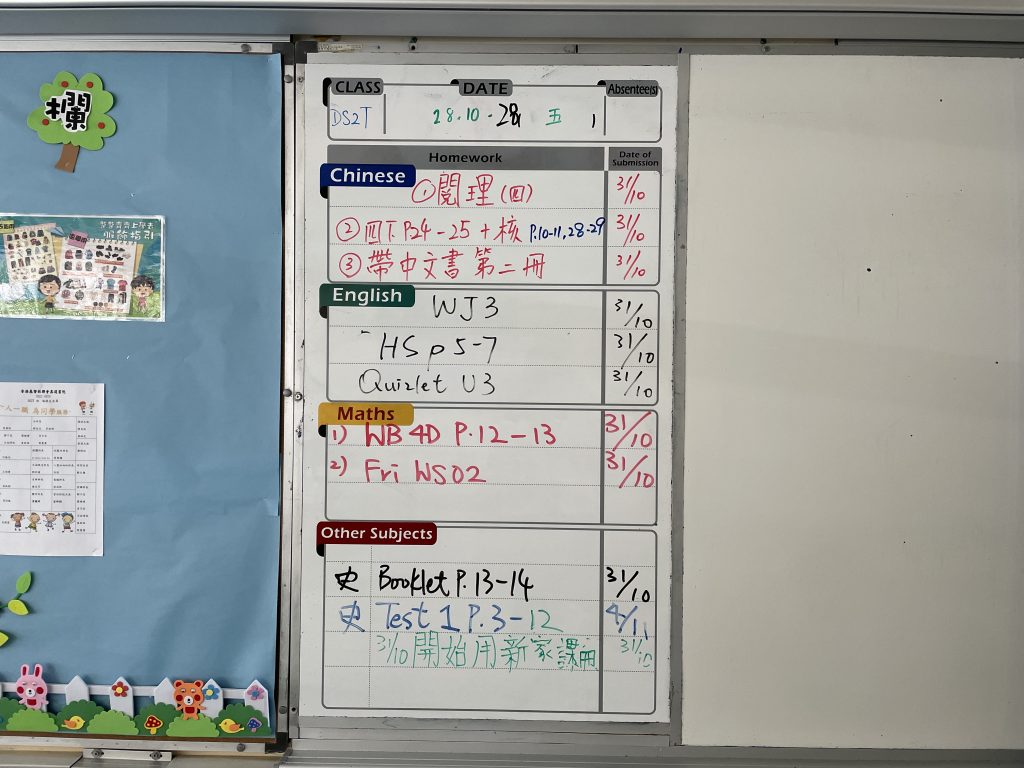 欄
整整齊齊上學去
服飾指引
一人一職 為同學服務
CLASS DATE Absentee(s)
DS2T 28.10.28 五 1
Homework Date of Submission
Chinese
① 閱理 (四) 31/10
② 四下 P24-25 + 核 P.10-11, 28-29 31/10
③ 帶中文書第二冊 31/10
English
WJ3 31/10
HS p5-7 31/10
Quizlet U3 31/10
Maths
1) WB 4D P.12-13 31/10
2) Fri WS02 31/10
Other Subjects
史 Booklet P.13-14 31/10
史 Test 1 P.3-12 4/11
31/10 開始用新家課冊 31/10